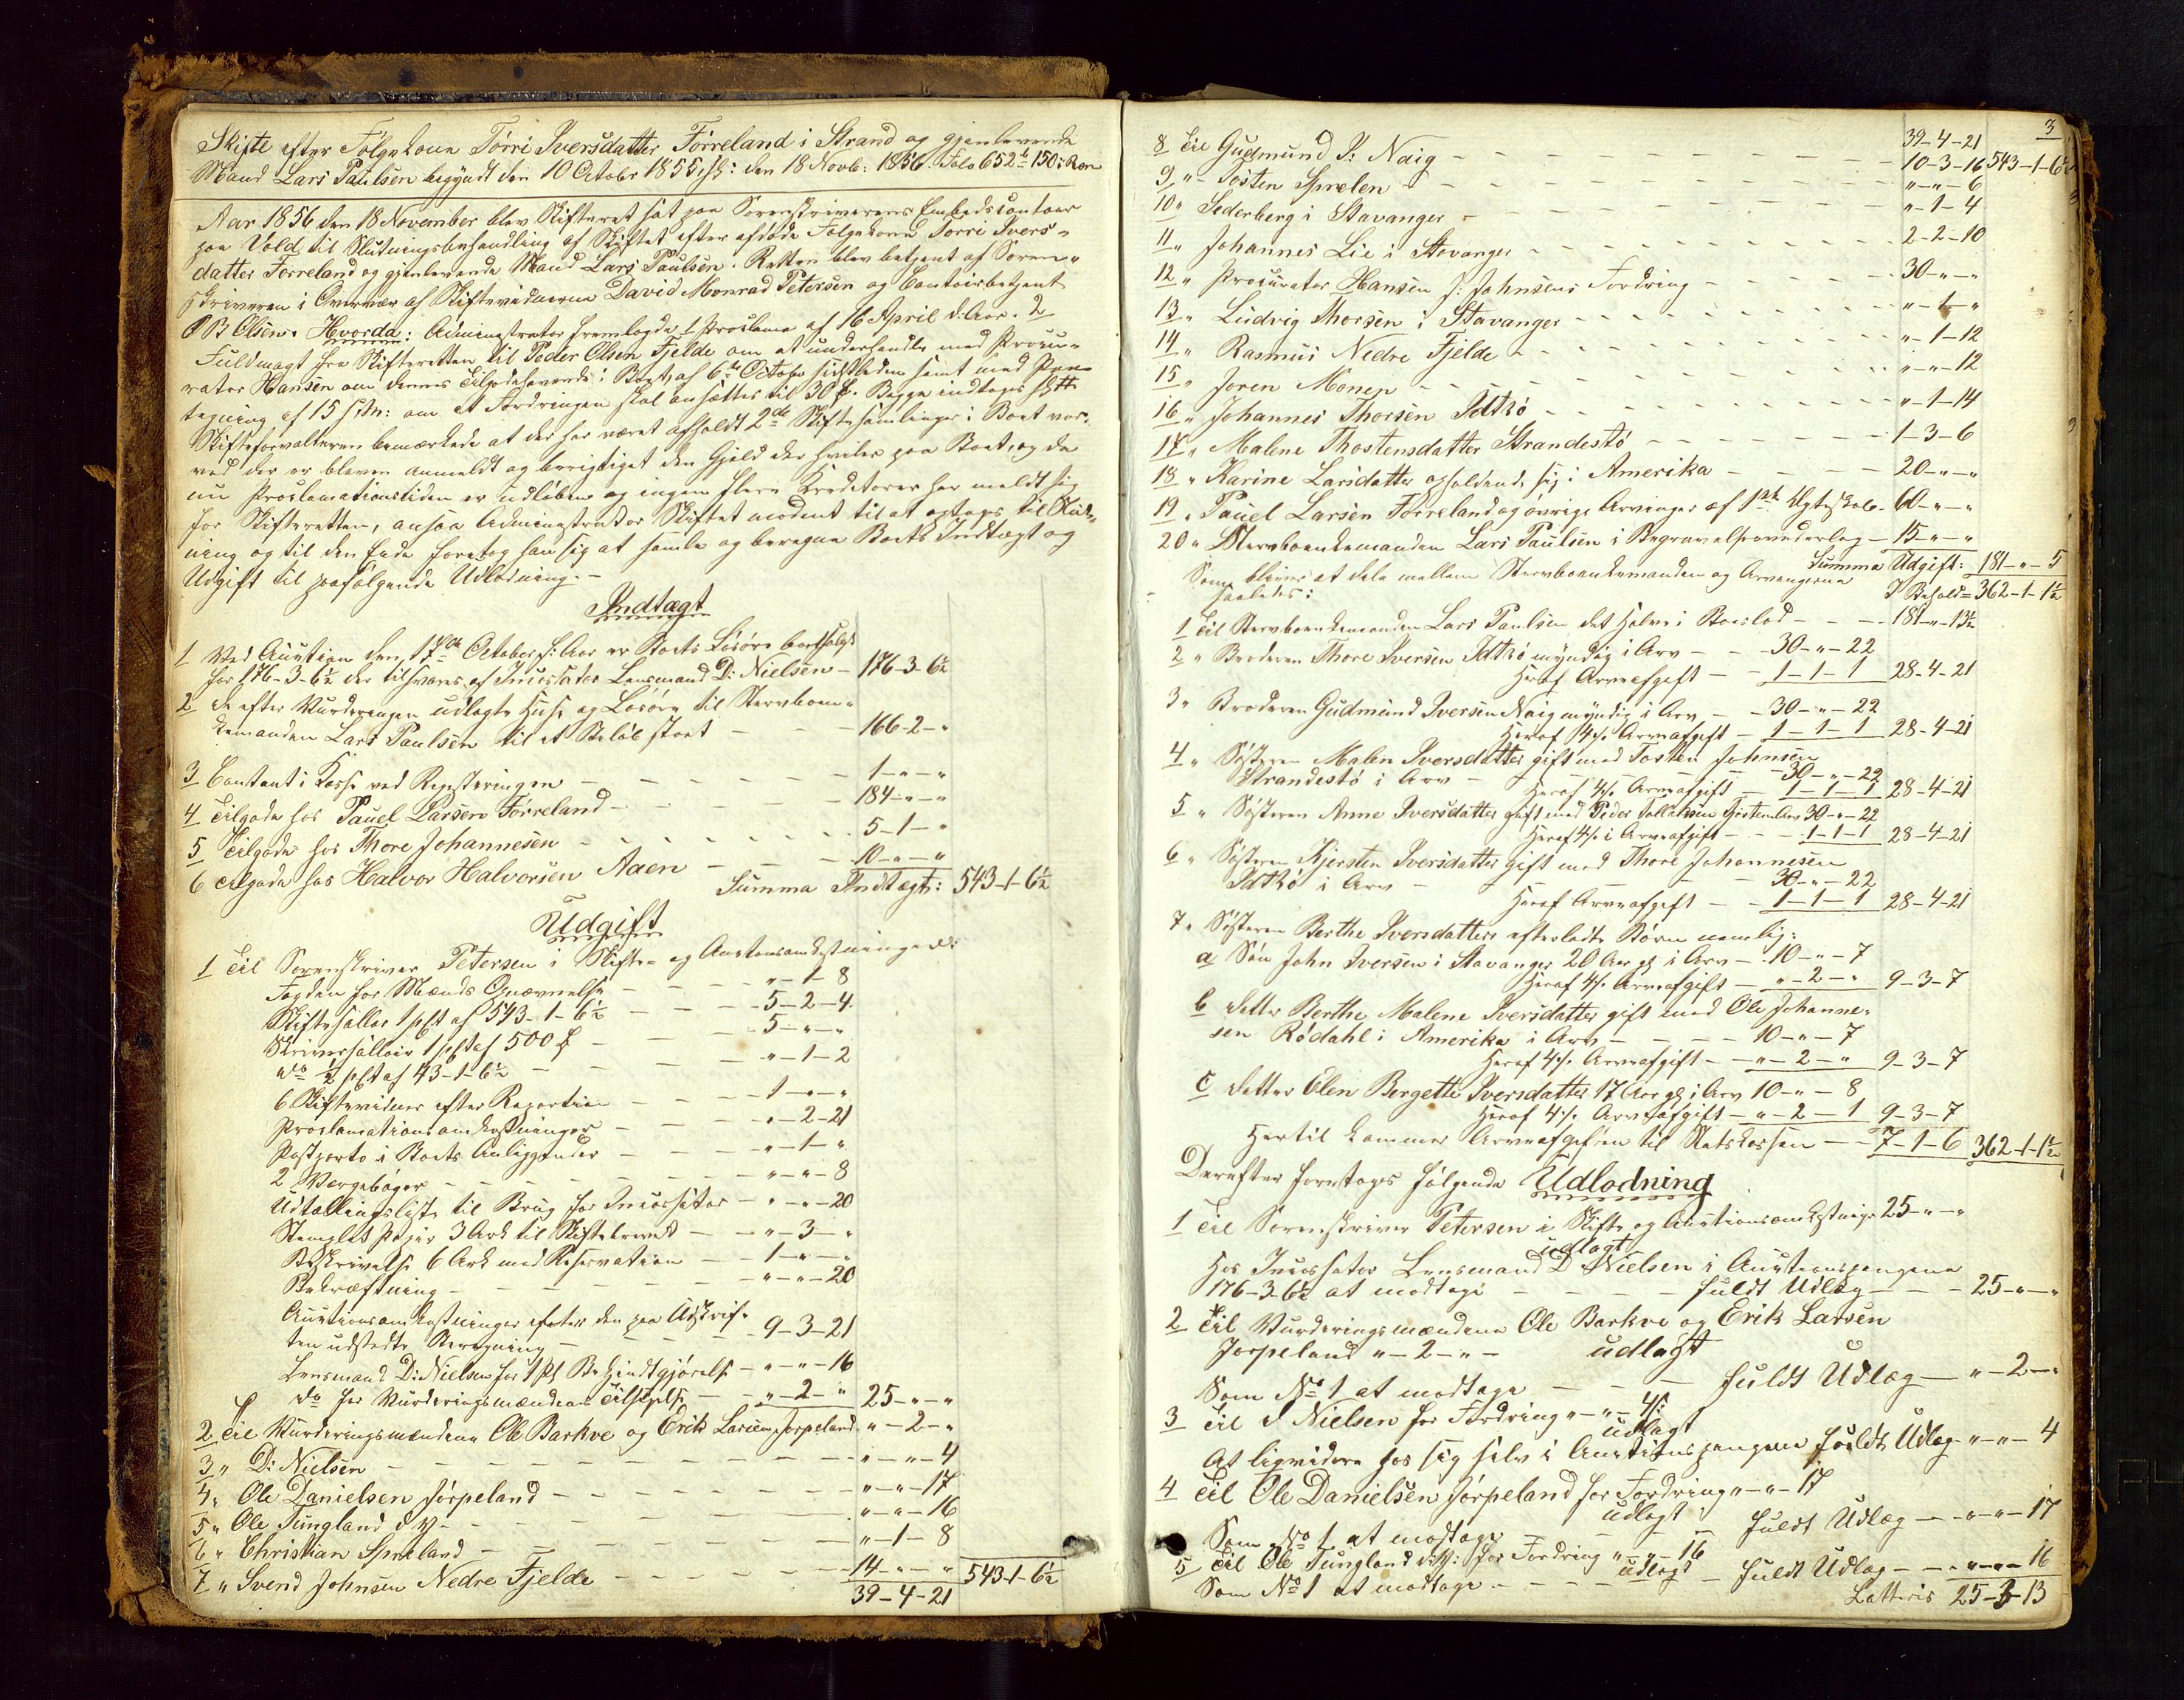 Skifte efter Følgekone Tørri Iversdatter Førreland i Strand og gjenlevende
Mand Lars Paulsen begyndt den 10 Octobr 1855, sl: den 18 Novb: 1856 Folo 652 b 150:
Aar 1856 den 18 November blev Skifteret sat paa Sorenskriverens Embedscontoir
paa Vold til Slutningsbehandling af Skiftet efter afdøde Følgekone Tørri Ivers-
datter Førreland og gjenlevende Mand Lars Paulsen. Retten blev betjent af Soren-
skriveren i Overvær af Skiftevidnerne David Monrad Petersen og Contoirbetjent
O B Olsen. Hvorda: Administrator fremlagde 1 Proclama af 16 April d: Aar. 2
Fuldmagt fra Skifteretten til Peder Olsen Fjelde om at underhandle med Procu-
rator Hansen om dennes Tilgodehavende i Boet, af 6te Octobr sidstleden samt med Paa-
tegning af 15 s: M: om at Fordringen skal ansættes til 30 Spd. Begge indtages
Skifteforvalteren bemærkede at der har været afholdt 2de Skiftesamlinger i Boet hvor-
ved der er bleven anmeldt og berigtiget den Gjeld der hviler paa Boet, og da
nu Proclamationstiden er udløben og ingen flere Kreditorer har meldt sig
for Skifteretten, ansaa Administrator Skiftet modent til at optages til Slut-
ning og til den Ende foretog han sig at samle og beregne Boets Indtægt og
Udgift til paafølgende Udlodning.-
Indtægt
1 Ved Auction den 17de October f: Aar er Boets Løsøre bortsolgt
for 176-3-6½ der tilsvares af Incassator Lensmand D: Nielsen - 176-3-6½
2 De efter Vurderingen udlagte Huse og Løsøre til Stervboen-
kemanden Lars Paulsen til et Beløb stort - - 166-2-"
3 Contant i Kasse ved Registeringen - - - 1-"-"
4 Tilgode hos Pauel Larsen Førreland - - - 184-"-"
5 Tilgode hos Thore Johannesen - - - 5-1-"
6 Tilgode hos Halvor Halvorsen Aaen - - - 10-"-"
Summa Indtægt: 543-1-6½
Udgift
1 Til Sorenskriver Petersen i Skifte- og Auctionsomkostninger:
Fogden for Mænds Opnævnelse - - "-1-8
Skiftesallar 1 pCt af 543-1-6½ - - 5-2-4
Skriversallair 1 pCt af 500 Spd - - 5-"-"
do ½ pCt af 43-1-6½ - - "-1-2
6 Skiftevidner efter Repartion - - 1-"-"
Proclamationsomkostninger - - "-2-21
Postporto i Boets Anliggender - - "-1-"
2 Værgebøger - - "-"-8
Udtællingsliste til Brug for Incassator - "-"-20
Stemplet Papir 3 Ark til Skiftebrevet - "-3-"
Beskrivelse 6 Ark med Reservation - 1-"-"
Bekræftning - - "-"-20
Auctionsomkostninger efter den paa Udskrif-
ten udstedte Beregning - - 9-3-21
Lensmand D: Nielsen for 1 Bekjendtgjørelse - "-"-16
do for Vurderingsmændenes Tilsigelse - "-2-" 25-"-"
2 Til Vurderingsmændene Ole Barkve og Erik Larsen Jørpeland "-2-"
3 " D: Nielsen - - - "-"-4
4 " Ole Danielsen Jørpeland - - - "-"-17
5 " Ole Tungland d y - - - "-"-16
6 " Christian Spreland - - - "-1-8
7 " Svend Johnsen Nedre Fjelde - - - 14-"-" 543-1-6½
39-4-21
3
39-4-21
8 Til Gudmund I: Naig - - - 10-3-16 543-1-6½
9 " Tosten Sprelen - - - "-"-6
10 " Sederberg i Stavanger - - - "-1-4
11 " Johannes Lie i Stavanger - - - 2-2-10
12 " Procurator Hansen f: Johnsens Fordring - - 30-"-"
13 " Ludvig Thorsen i Stavanger - - - "-1-"
14 " Rasmus Nedre Fjelde - - - "-1-12
15 " Joren Monen - - - "-"-12
16 " Johannes Thorsen Idtsø - - - "-1-14
17 " Malene Thostensdatter Strandestø - - - 1-3-6
18 " Karine Larsdatter opholdende sig i Amerika - - 20-"-"
19 " Pauel Larsen Førreland og øvrige Arvinger af 1ste Ægteskab - 60-"-"
20 " Stervboenkemanden Lars Paulsen i Begravelsesvederlag - 15-"-"
Summa Udgift: 181-"-5
Som bliver at dele mellem Stervboenkemanden og Arvingerne I Behold = 362-1-1½
saaledes:
1 Til Stervboenkemanden Lars Paulsen det Halve i Boeslod - - 181-"-13½
2 " Broderen Thore Iversen Idtsø myndig i Arv - - 30-"-22
Heraf Arveafgift - - 1-1-1 28-4-21
3 " Broderen Gudmund Iversen Naig myndig i Arv - 30-"-22
Heraf 4% Arveafgift - 1-1-1 28-4-21
4 " Søsteren Malen Iversdatter gift med Tosten Johnsen
Strandestø i Arv - - 30-"-22
Heraf 4% Arveafgift - 1-1-1 28-4-21
5 " Søsteren Anne Iversdatter gift med Peder Tollaksen i Arv 30-"-22
Heraf 4% i Arveafgift - - 1-1-1 28-4-21
6 " Søsteren Kjersten Iversdatter gift med Thore Johannesen
Idtsø i Arv - - 30-"-22
Heraf Arveafgift - - 1-1-1 28-4-21
7 " Søsteren Berthe Iversdatters efterladte Børn nemlig:
a Søn John Iversen i Stavanger 20 Aar gl i Arv - 10-"-7
Heraf 4% Arveafgift - "-2-" 9-3-7
b Datter Berthe Malene Iversdatter gift med Ole Johanne-
sen Rødahl i Amerika i Arv - - 10-"-7
Heraf 4% Arveafgift - "-2-" 9-3-7
c Datter Elen Bergette Iversdatter 17 Aar gl i Arv 10-"-8
Heraf 4% Arveafgift - "-2-1 9-3-7
Hertil kommer Arveafgiften til Statskassen - - 7-1-6 362-1-1½
Derefter foretages følgende Udlodning
1 Til Sorenskriver Petersen i Skifte og Auctionsomkostninger 25-"-"
udlagt
Hos Incassator Lensmand D Nielsen i Auctionspengene
176-3-6½ at modtage - - - fuldt Udlæg - - 25-"-"
2 Til Vurderingsmændene Ole Barkve og Erik Larsen
Jørpeland "-2-"- udlagt
Som No 1 at modtage - - - fuldt Udlæg - "-2-"
3 Til D Nielsen for Fordring "-"-4 s:
udlagt
At liqvidere hos sig selv i Auctionspengene fuldt Udlæg "-"-4
4 Til Ole Danielsen Jørpeland for Fordring "-"-17
udlagt
Som No 1 at modtage - - fuldt Udlæg - "-"-17
5 Til Ole Tungland d y: for Fordring "-"-16
udlagt
Som No 1 at modtage - - - fuldt Udlæg - - "-"-16
Latteris 25-3-13